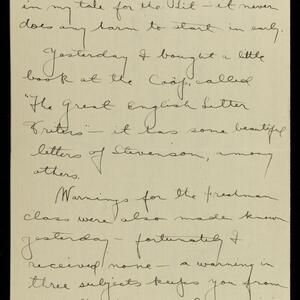 in my tale for the Lit - it never
does any harm to start in early.
Yesterday I bought a little
book at the Coöp, called
"The Great English Letter
Writers" - it has some beautiful
letters of Stevenson, among
others.
Warnings for the freshman
class were also made known
yesterday - fortunately I
received none - a warning in
three subjects keeps you from